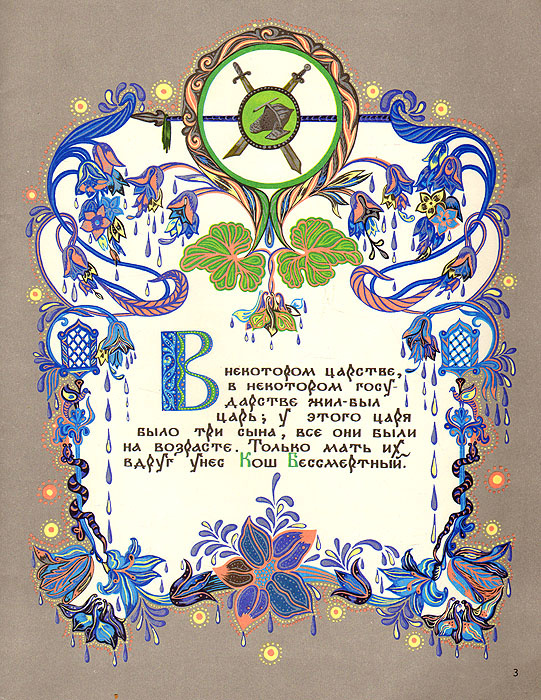 В некотором царстве,
в некотором госу-
дарстве жил-был
царь; у этого царя
было три сына, все они были
на возрасте. Только мать их
вдруг унес Кош Бессмертный.
3